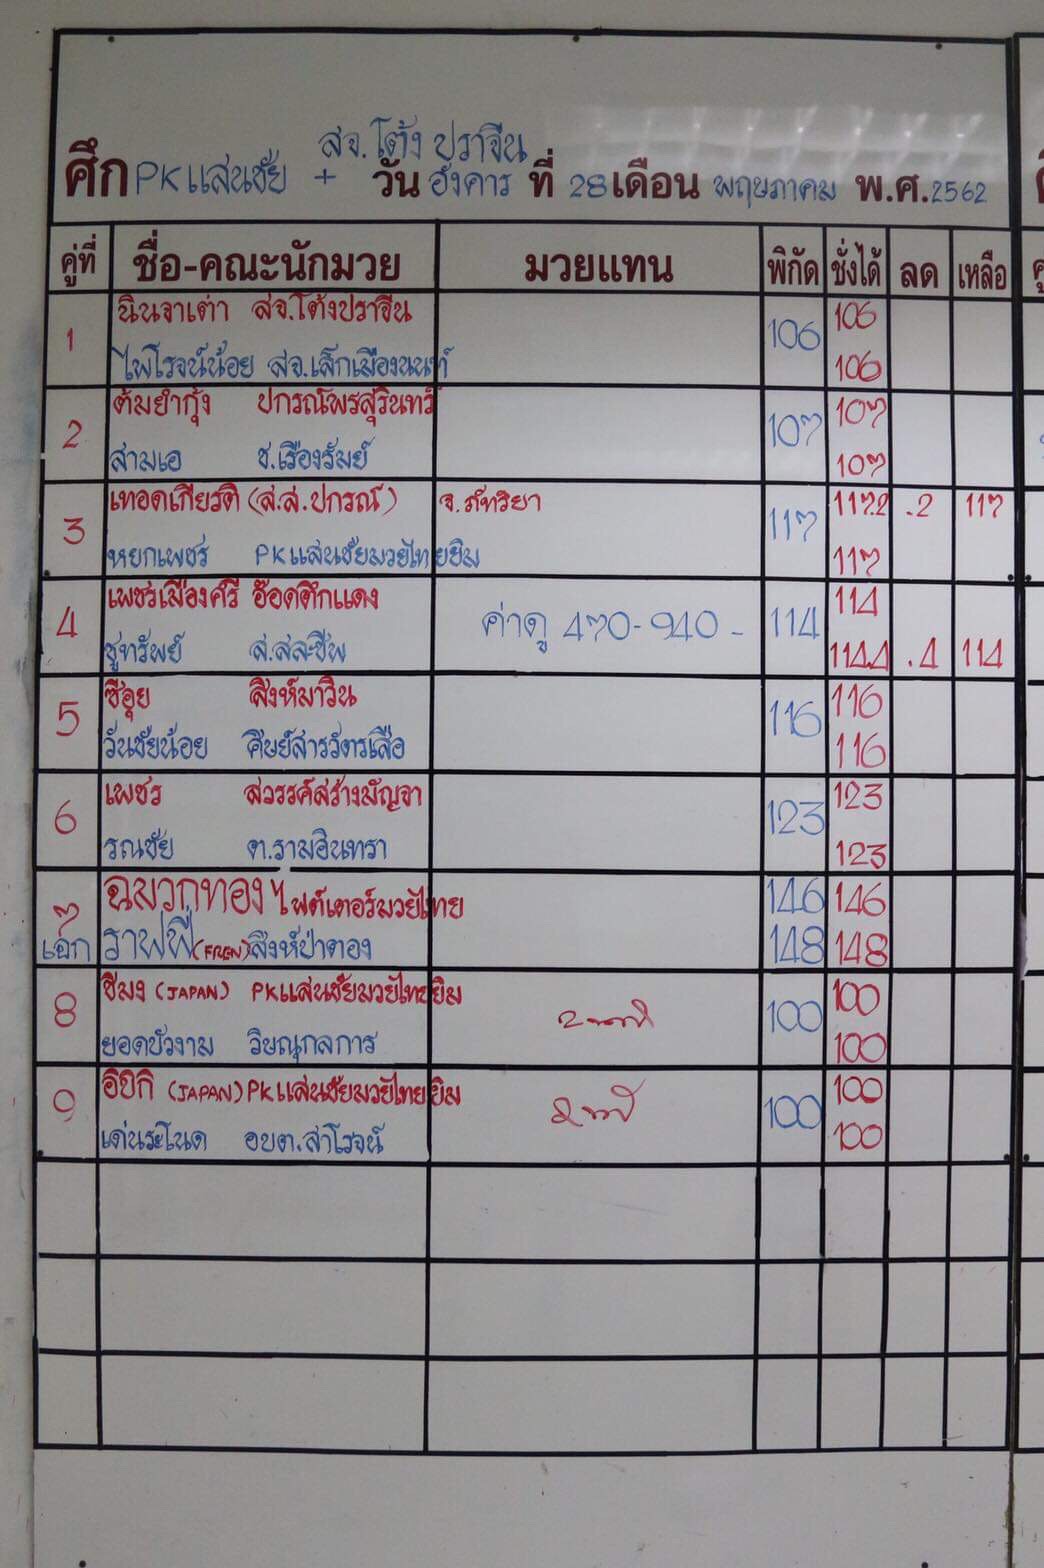 สจ.โต้ง ปราจีน
ศึก PK แสนชัย + วัน อังคาร ที่ 28 เดือน พฤษภาคม พ.ศ. 2562
คู่ที่ ชื่อ-คณะนักมวย มวยแทน พิกัด ชั่งได้ ลด เหลือ
1 นินจาเต่า สจ.โต้งปราจีน 106 106
ไพโรจน์น้อย สจ.เล็กเมืองนนท์ 106
2 ต้มยำกุ้ง ปกรณ์พรสุรินทร์ 107 107
สามเอ ช.เรืองรัมย์ 107
3 เทอดเกียรติ (ส.ส.ปกรณ์) จ.ภัทริยา 117 117.2 .2 117
หยกเพชร PK แสนชัยมวยไทยยิม 117
4 เพชรเมืองศรี อ๊อดตึกแดง ค่าดู 470-940- 114 114
ชูทรัพย์ ส.สละชีพ 114.4 .4 114
5 ซีอุย สิงห์มาวิน 116 116
วันชัยน้อย ศิษย์สารวัตรเสือ 116
6 เพชร สวรรค์สร้างมัญจา 123 123
รณชัย ต.รามอินทรา 123
7 ฉมวกทอง ไฟต์เตอร์มวยไทย 146 146
เอก ราฟฟี่ (FREN) สิงห์ป่าตอง 148 148
8 ชิมง (JAPAN) PK แสนชัยมวยไทยยิม 100 100
ยอดบัวงาม วิษณุกลการ 100
9 อิบิกิ (JAPAN) PK แสนชัยมวยไทยยิม 100 100
เด่นระโนด อบต.สาโรจน์ 100